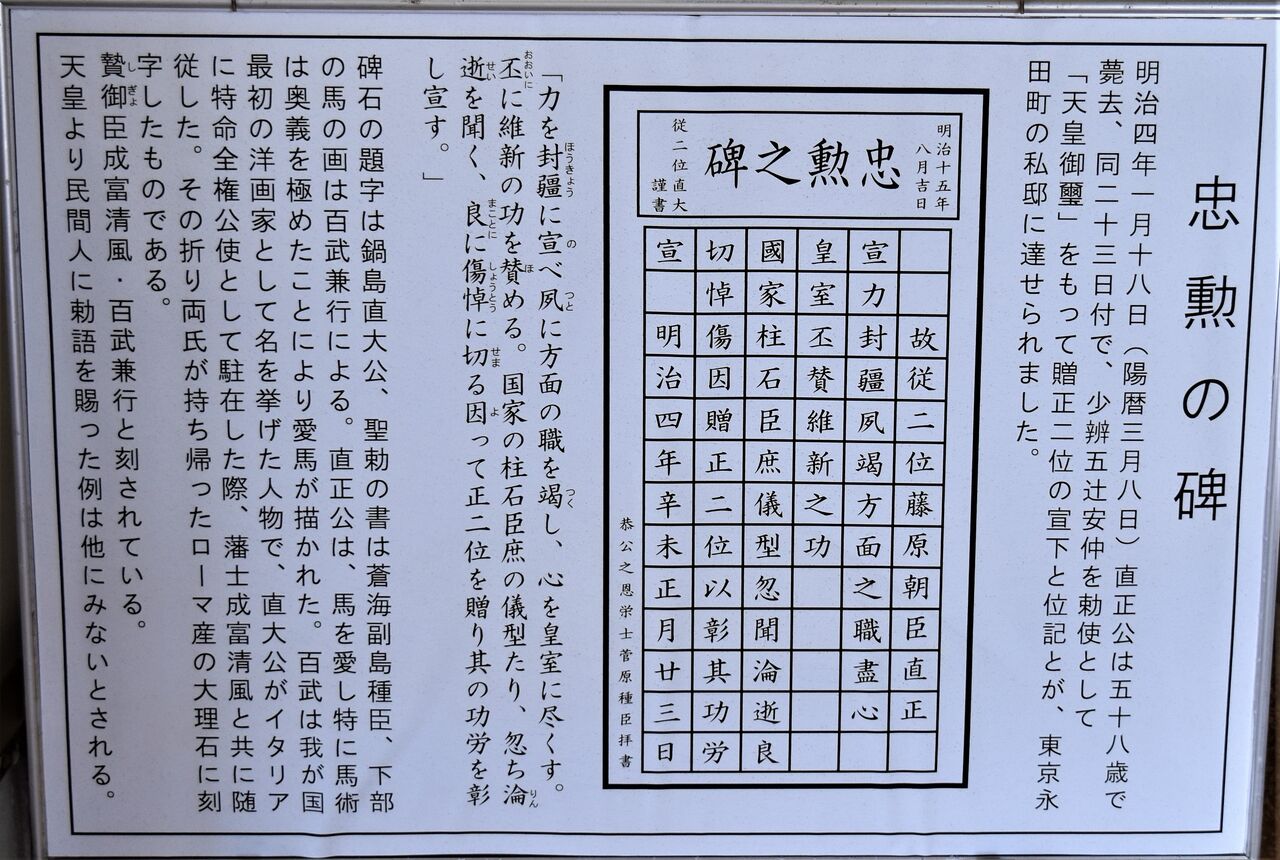 忠勲の碑
明治四年一月十八日（陽暦三月八日）直正公は五十八歳で
薨去、同二十三日付で、少辨五辻安仲を勅使として
「天皇御璽」をもって贈正二位の宣下と位記とが、東京永
田町の私邸に達せられました。
明治十五年
八月吉日
忠勲之碑
従二位直大
謹書
故従二位藤原朝臣直正
宣力封疆夙竭方面之職盡心
皇室丕賛維新之功
國家柱石臣庶儀型忽聞淪逝良
切悼傷因贈正二位以彰其功労
宣 明治四年辛未正月廿三日
恭公之恩栄士菅原種臣拝書
「力を封疆に宣べ夙に方面の職を竭し、心を皇室に尽くす。
丕に維新の功を賛める。国家の柱石臣庶の儀型たり、忽ち淪
逝を聞く、良に傷悼に切る因って正二位を贈り其の功労を彰
し宣す。」
碑石の題字は鍋島直大公、聖勅の書は蒼海副島種臣、下部
の馬の画は百武兼行による。直正公は、馬を愛し特に馬術
は奥義を極めたことにより愛馬が描かれた。百武は我が国
最初の洋画家として名を挙げた人物で、直大公がイタリア
に特命全権公使として駐在した際、藩士成富清風と共に随
従した。その折り両氏が持ち帰ったローマ産の大理石に刻
字したものである。
贄御臣成富清風・百武兼行と刻されている。
天皇より民間人に勅語を賜った例は他にみないとされる。